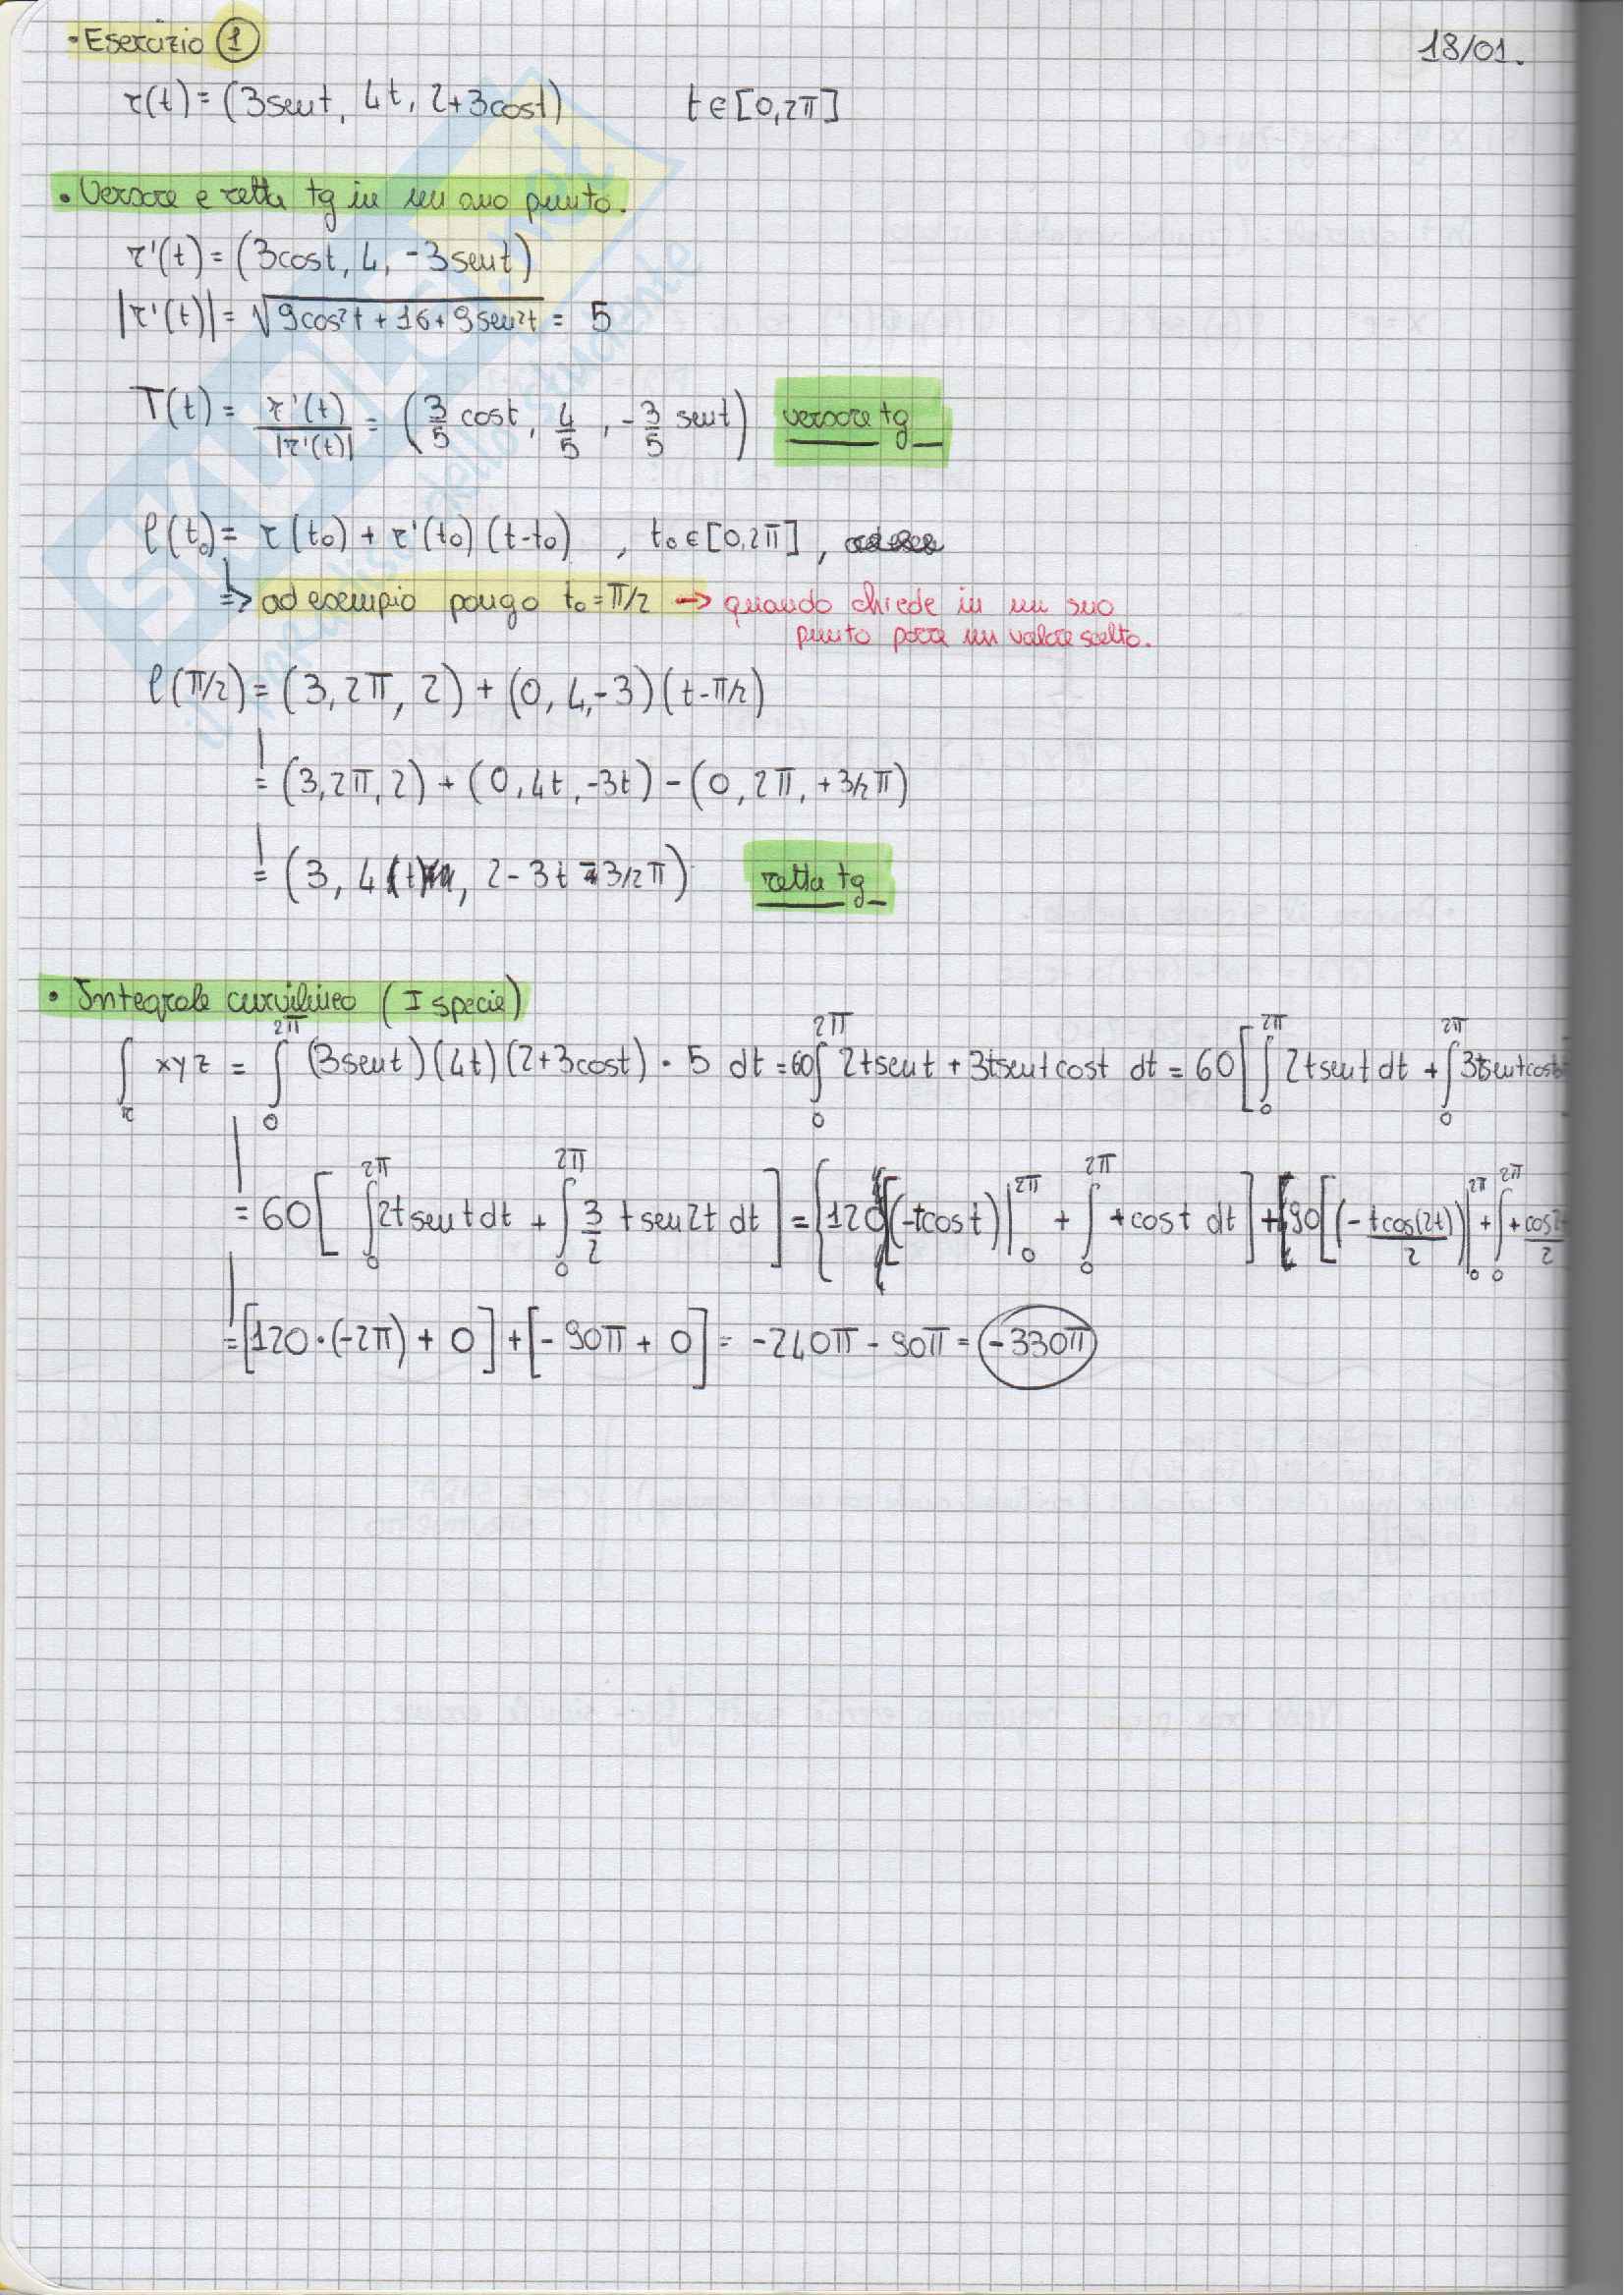 • Esercizio 1 18/01.
r(t) = (3sent, 4t, 2+3cost) t∈[0,2π]
• Versore e retta tg in un suo punto.
r'(t) = (3cost, 4, -3sent)
|r'(t)| = √9cos²t + 16 + 9sen²t = 5
T(t) = r'(t)/|r'(t)| = (3/5 cost, 4/5, -3/5 sent) versore tg
l(t₀) = r(t₀) + r'(t₀)(t-t₀), t₀∈[0,2π],
=> ad esempio pongo t₀=π/2 → quando chiede in un suo
punto porre un valore scelto.
l(π/2) = (3, 2π, 2) + (0, 4, -3)(t-π/2)
= (3, 2π, 2) + (0, 4t, -3t) - (0, 2π, +3/2π)
= (3, 4t, 2-3t 3/2π) retta tg
• Integrale curvilineo (I specie)
∫r xyz = ∫₀^2π (3sent)(4t)(2+3cost) · 5 dt = 60∫₀^2π 2tsent + 3tsentcost dt = 60[∫₀^2π 2tsent dt + ∫₀^2π 3tsentcost
= 60[∫₀^2π 2tsent dt + ∫₀^2π 3/2 tsen2t dt] = [120[(-tcost)|₀^2π + ∫₀^2π +cost dt] + [90[(-tcos(2t)/2)|₀^2π + ∫₀^2π +cos2t/2
= [120·(-2π) + 0] + [-90π + 0] = -240π - 90π = -330π